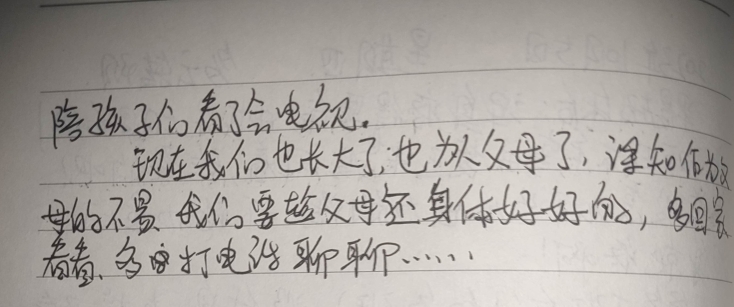 陪孩子们看了会电视。
现在我们也长大了,也为人父母了,深知作为父
母的不易,我们要趁父母还身体好好的,多回家
看看、多打电话聊聊……